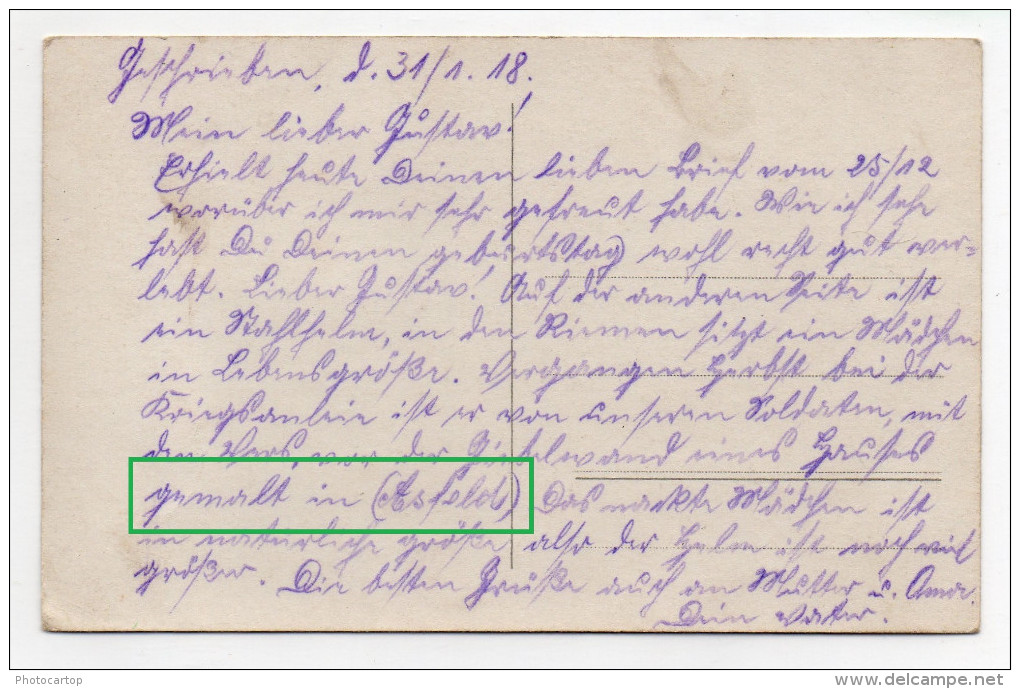 Geschrieben, d. 31/1. 18.
Mein lieber Gustav!
Erhielt heute Deinen lieben Brief vom 25/12
worüber ich mir sehr gefreut habe. Wie ich sehe
hast Du Deinen geburtstag wohl recht gut ver-
lebt. Lieber Gustav! Auf der anderen Seite ist
ein Stahlhelm, in den Riemen sitzt ein Mädchen
in Lebensgröße. Vergangen Herbst bei der
Kriegsanleie ist er von unseren Soldaten, mit
den Vers, vor der Giebelwand eines Hauses
gemalt in (Asfeld) Das nackte Mädchen ist
in natürliche größe also der Helm ist noch viel
größer. Die besten Grüße auch an Mutter u.
Dein Vater.
Photocartop
delcampe.net